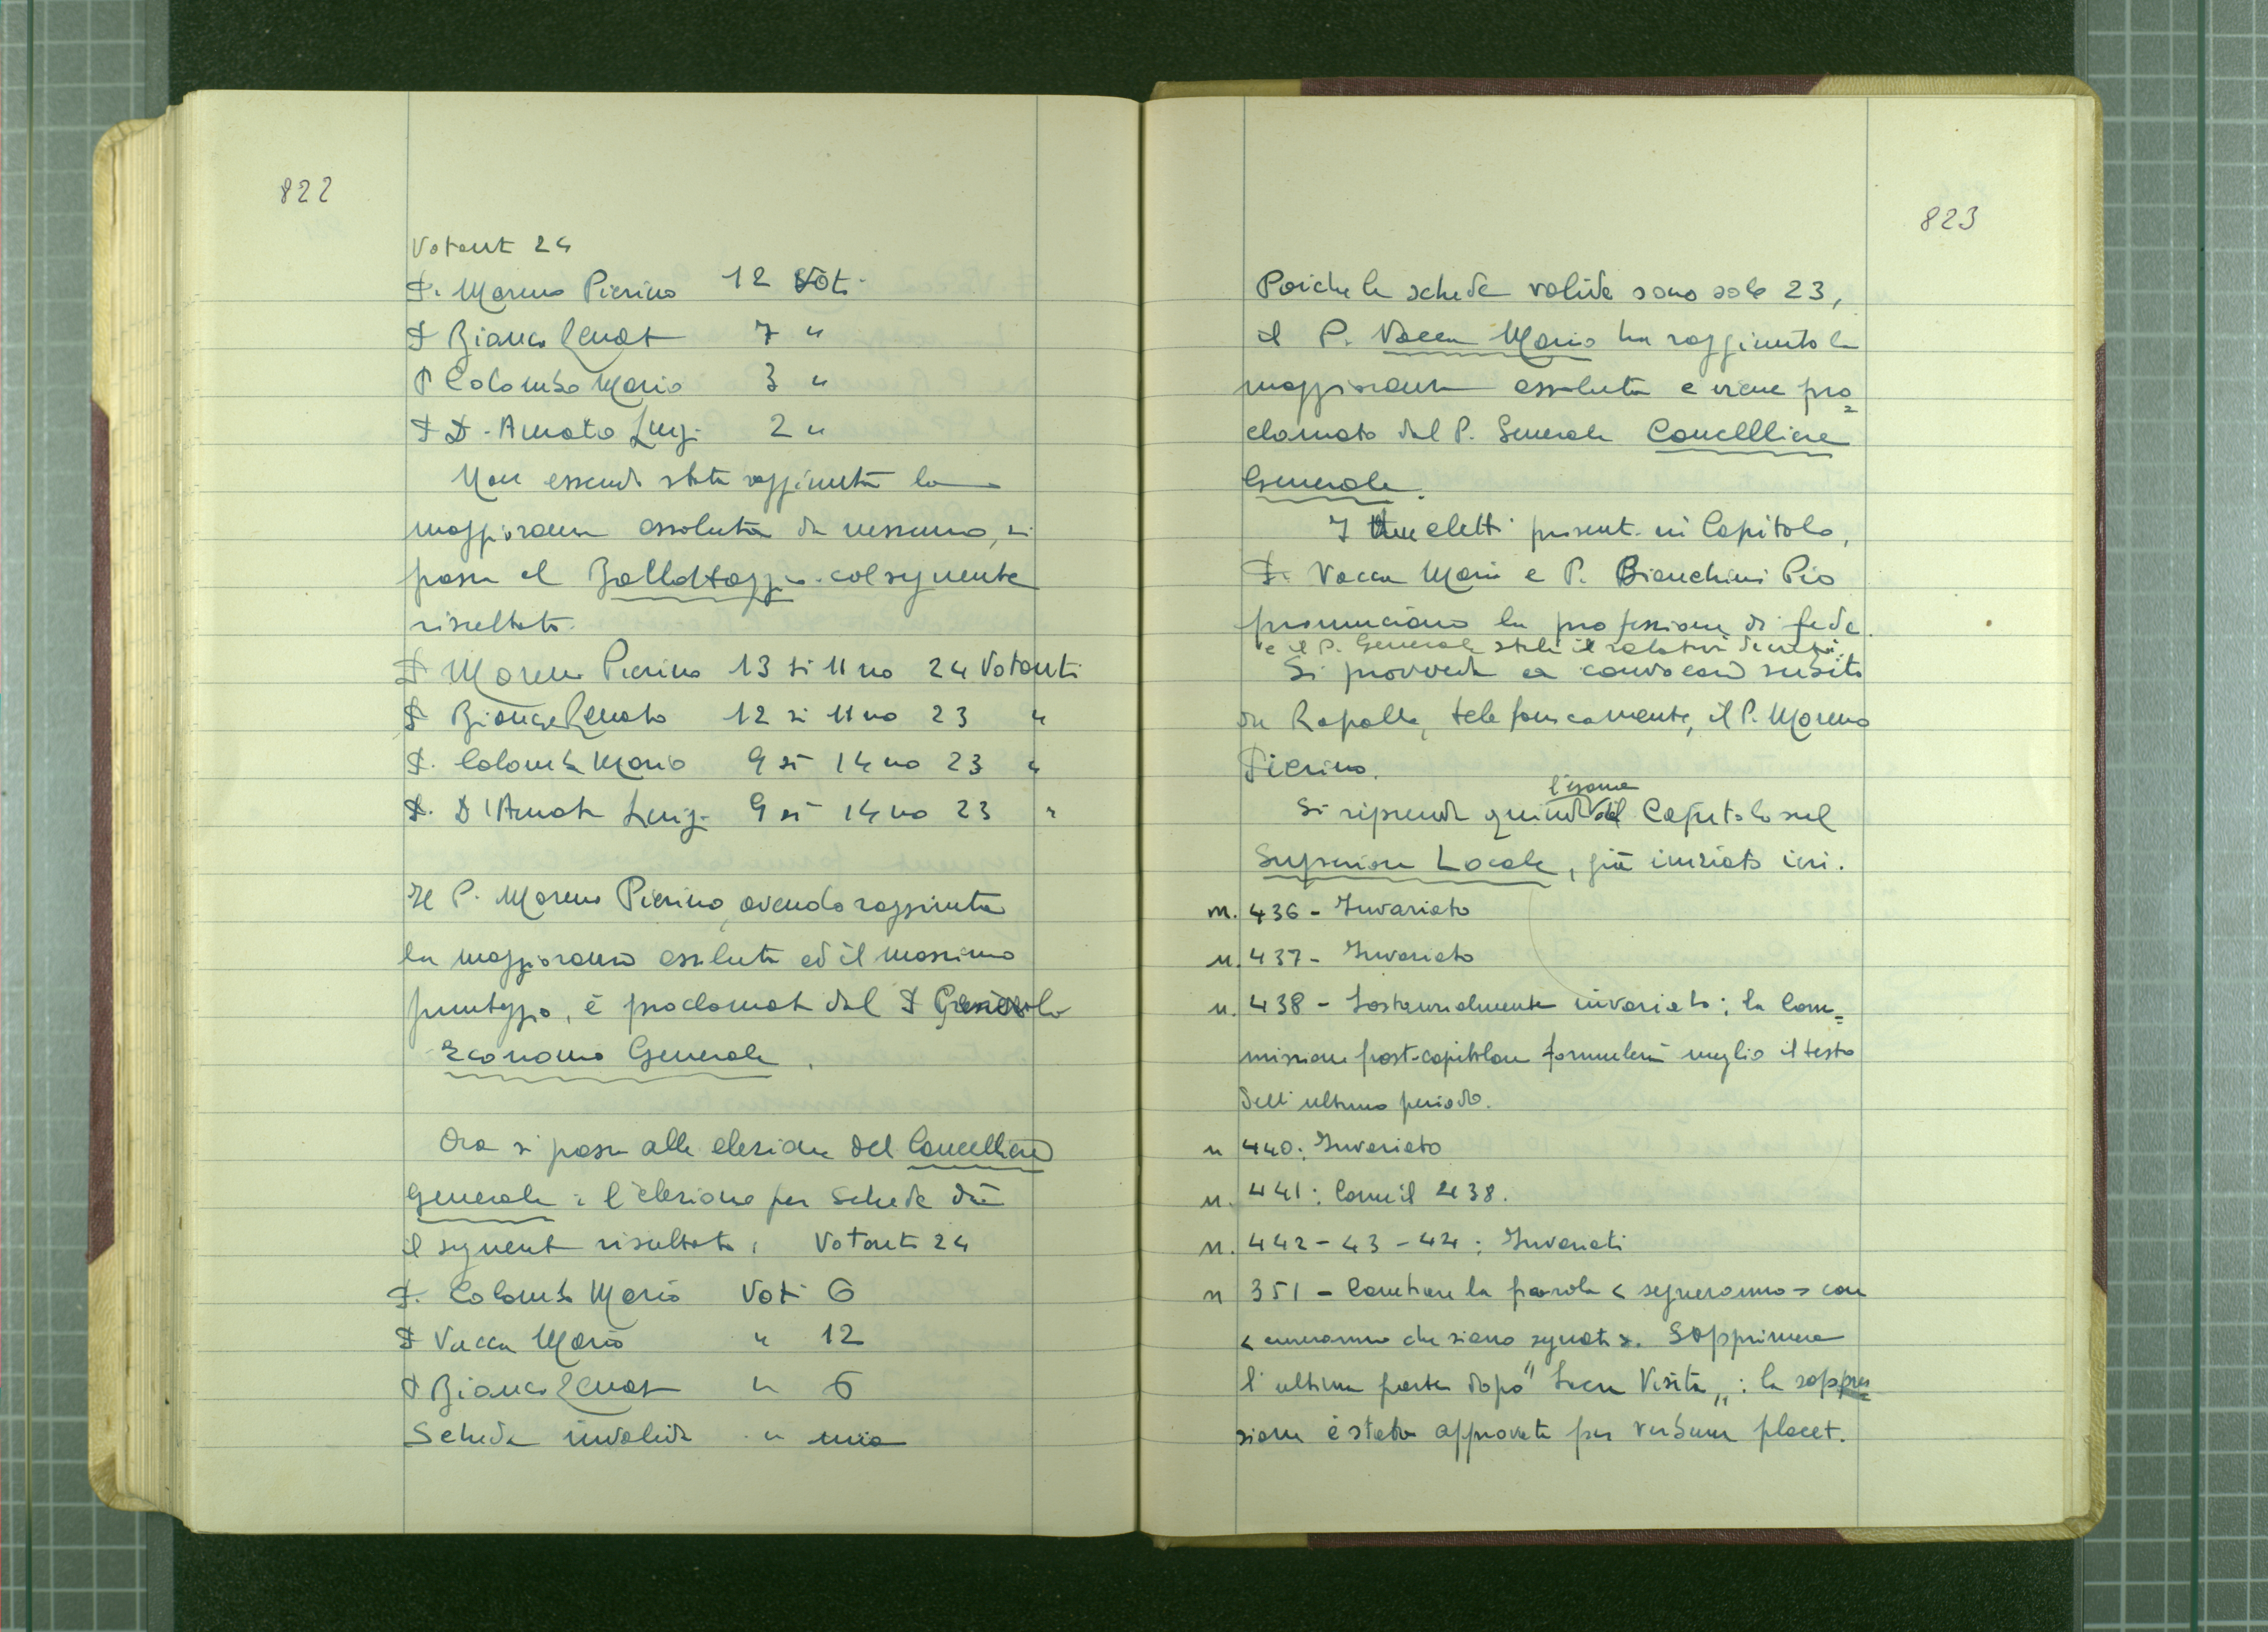 822
Votanti 24
P. Moreno Pierino 12 Voti
P Bianco Renato 7 "
P Colombo Mario 3 "
P D'Amato Luigi 2 "
Non essendo stata raggiunta la
maggioranza assoluta da nessuno, si
passa al Ballottaggio col seguente
risultato.
P Moreno Pierino 13 si 11 no 24 Votanti
P Bianco Renato 12 si 11 no 23 "
P. Colombo Mario 9 si 14 no 23 "
P. D'Amato Luigi 9 si 14 no 23 "
Il P. Moreno Pierino, avendo raggiunta
la maggioranza assoluta ed il massimo
punteggio, è proclamato dal P Generale
Economo Generale.
Ora si passa alla elezione del Cancelliere
Generale: l'elezione per schede dà
il seguente risultato: Votanti 24
P. Colombo Mario Voti 6
P Vacca Mario " 12
P Bianco Renato " 5
Scheda invalida " una
823
Poiché le schede valide sono solo 23,
il P. Vacca Mario ha raggiunto la
maggioranza assoluta e viene pro=
clamato dal P. Generale Cancelliere
Generale.
I due eletti presenti in Capitolo,
P. Vacca Mario e P. Bianchini Pio
pronunciano la professione di fede.
e il P. Generale stila il relativo decreto.
Si provvede a convocare subito
da Rapallo, telefonicamente, il P. Moreno
Pierino.
Si riprende quindi l'esame del Capitolo sul
Superiore Locale, già iniziato ieri.
n. 436 - Invariato
n. 437 - Invariato
n. 438 - Sostanzialmente invariato; la Com=
missione post-capitolare formulerà meglio il testo
dell'ultimo periodo.
n 440: Invariato
n. 441: Come il 438.
n. 442-43-44: Invariati
n 351 - Cambiare la parola < segneranno > con
< cureranno che siano segnati >. Sopprimere
l'ultima parte dopo "Sacra Visita": la soppres
sione è stata approvata per verbum placet.